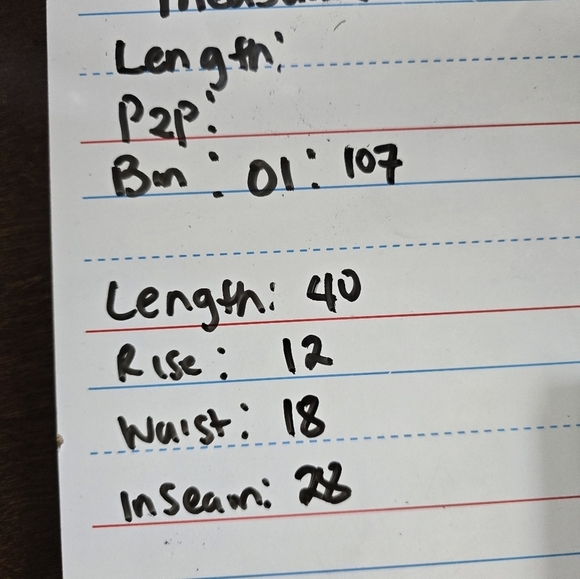 Length:
P2P:
Bin: 01: 107
Length: 40
Rise: 12
Waist: 18
Inseam: 28